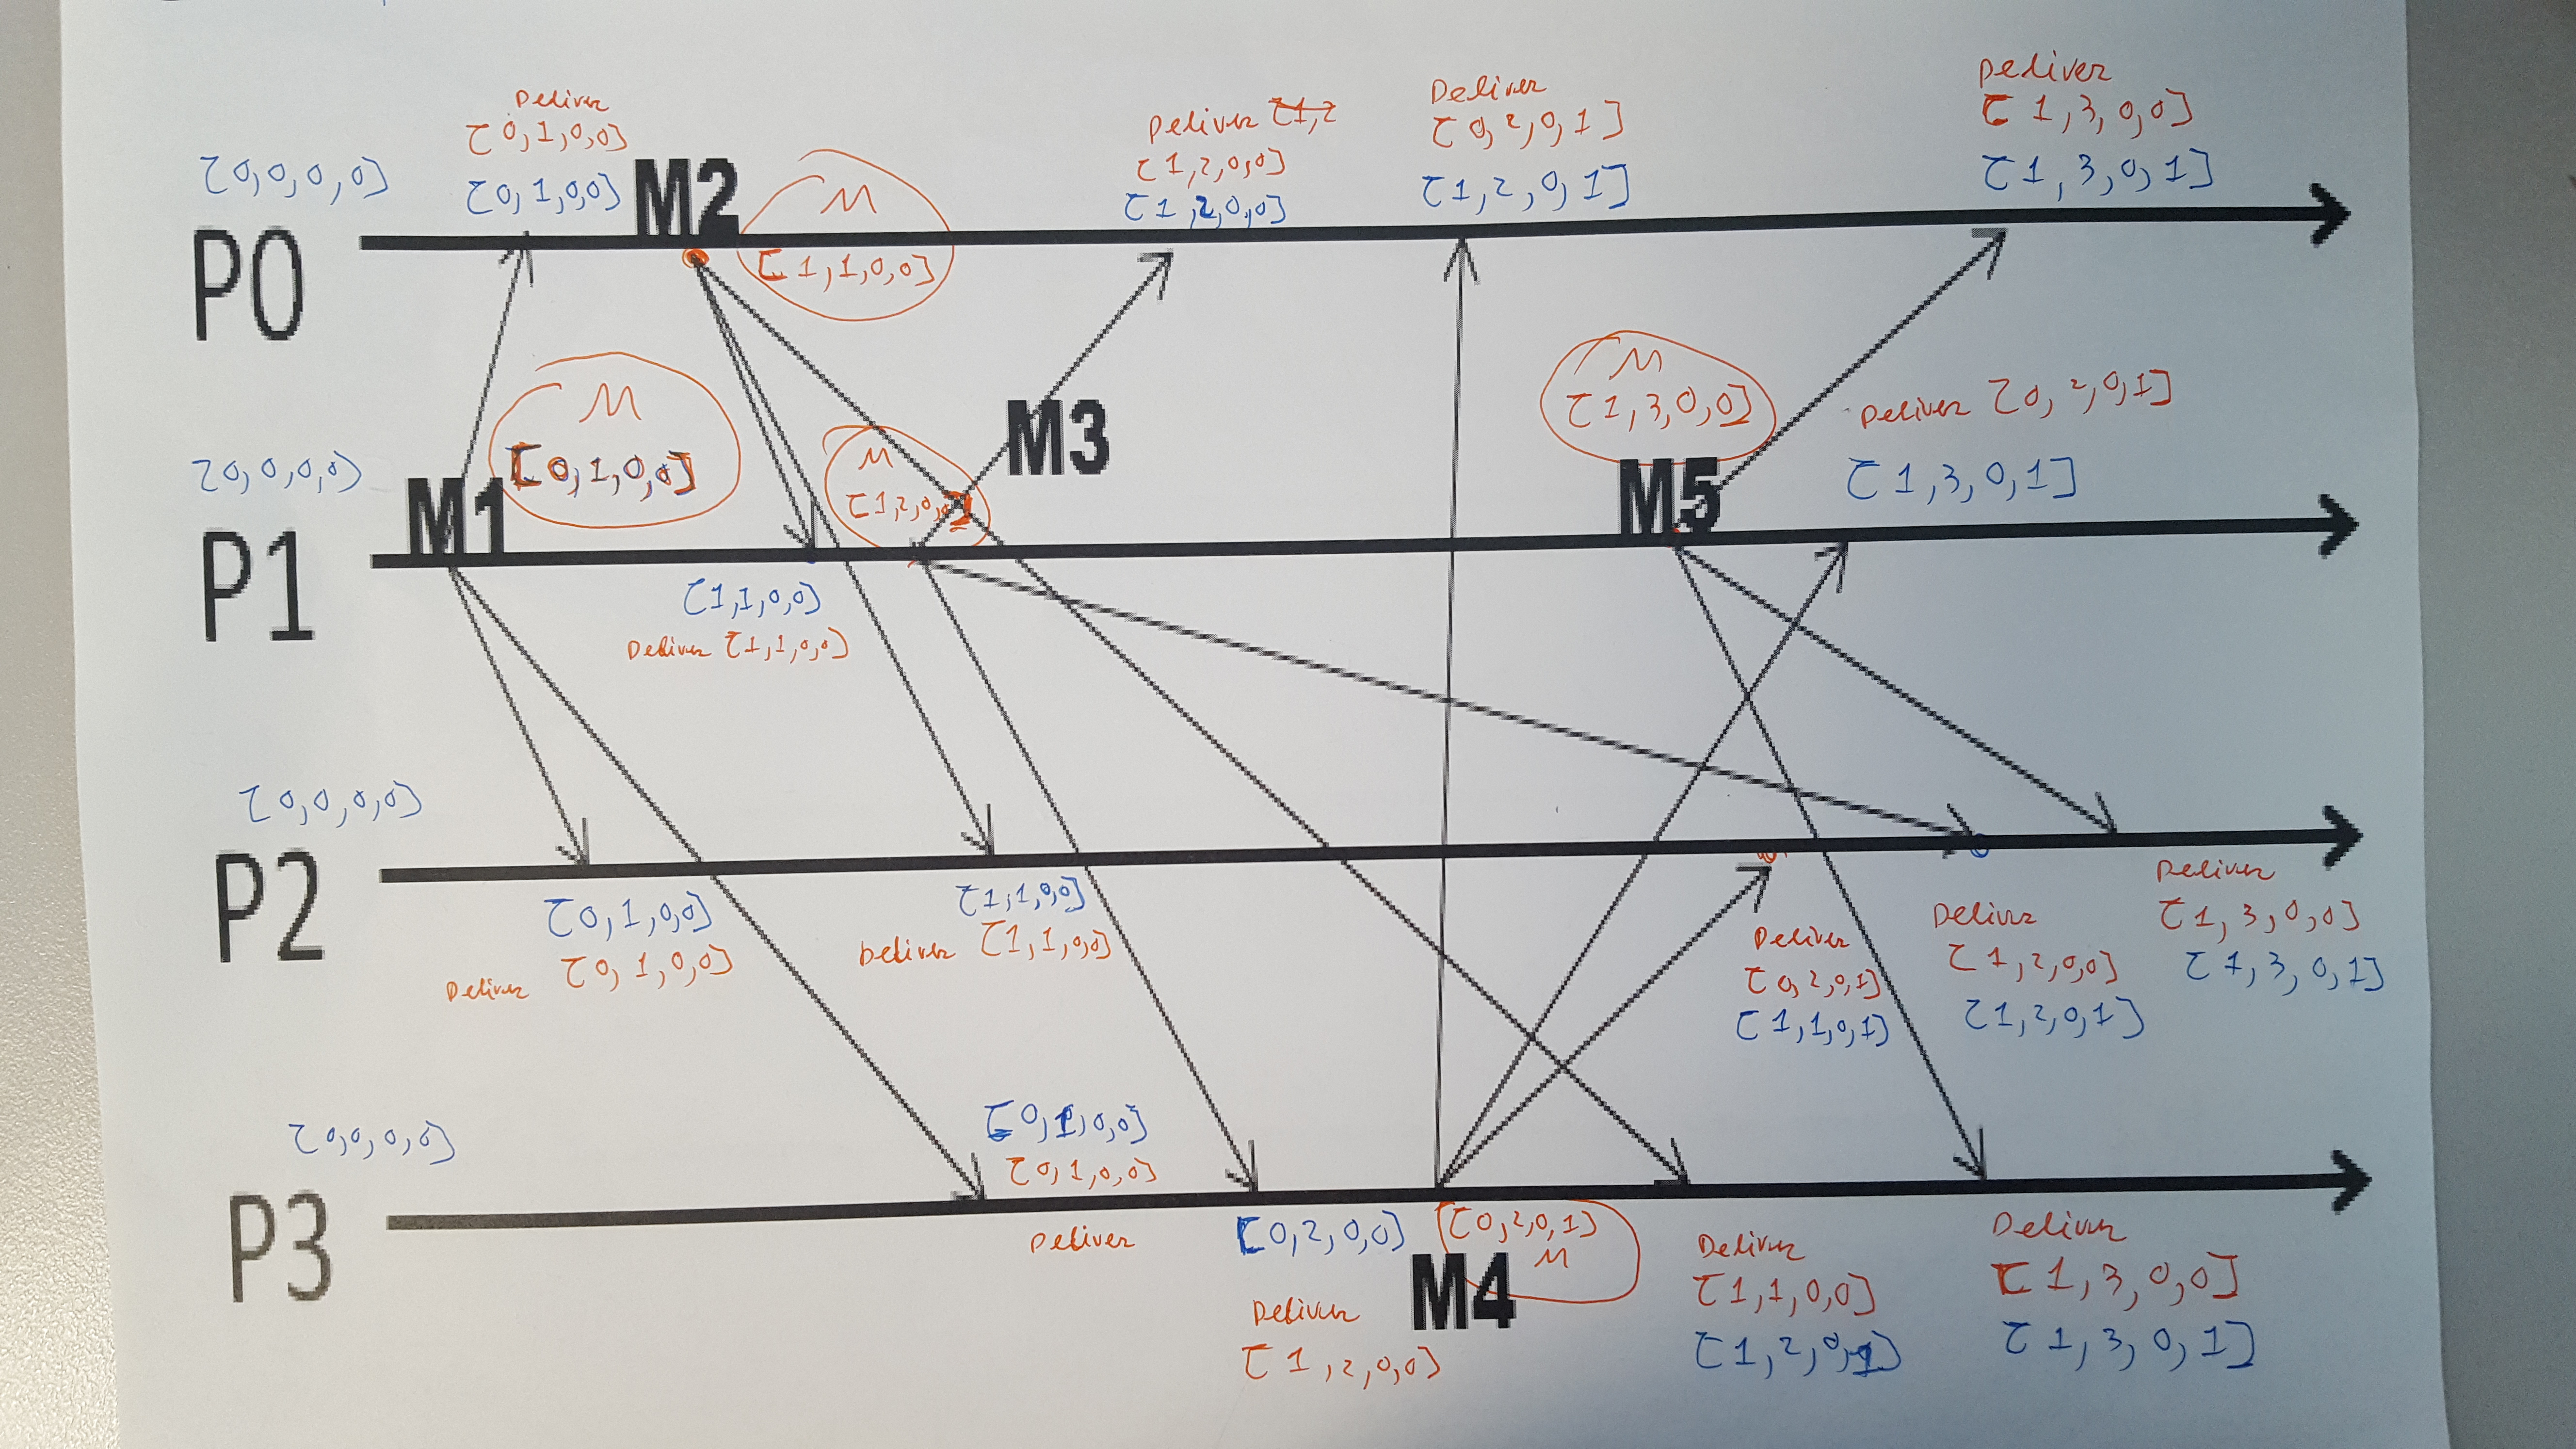 Deliver
[0,1,0,0]
[0,0,0,0]
[0,1,0,0]
M2
M
[1,1,0,0]
Deliver [1,2
[1,2,0,0]
[1,2,0,0]
Deliver
[0,2,0,1]
[1,2,0,1]
Deliver
[1,3,0,0]
[1,3,0,1]
P0
M
[0,1,0,0]
M
[1,2,0,0]
M3
M
[1,3,0,0]
Deliver [0,2,0,1]
[1,3,0,1]
[0,0,0,0]
M1
M5
P1
[1,1,0,0]
Deliver [1,1,0,0]
[0,0,0,0]
P2
[0,1,0,0]
Deliver [0,1,0,0]
[1,1,0,0]
Deliver [1,1,0,0]
Deliver
[0,2,0,1]
[1,1,0,1]
Deliver
[1,2,0,0]
[1,2,0,1]
Deliver
[1,3,0,0]
[1,3,0,1]
[0,0,0,0]
[0,1,0,0]
[0,1,0,0]
P3
Deliver
[0,2,0,0]
Deliver
[1,2,0,0]
[0,2,0,1]
M
M4
Deliver
[1,1,0,0]
[1,2,0,1]
Deliver
[1,3,0,0]
[1,3,0,1]